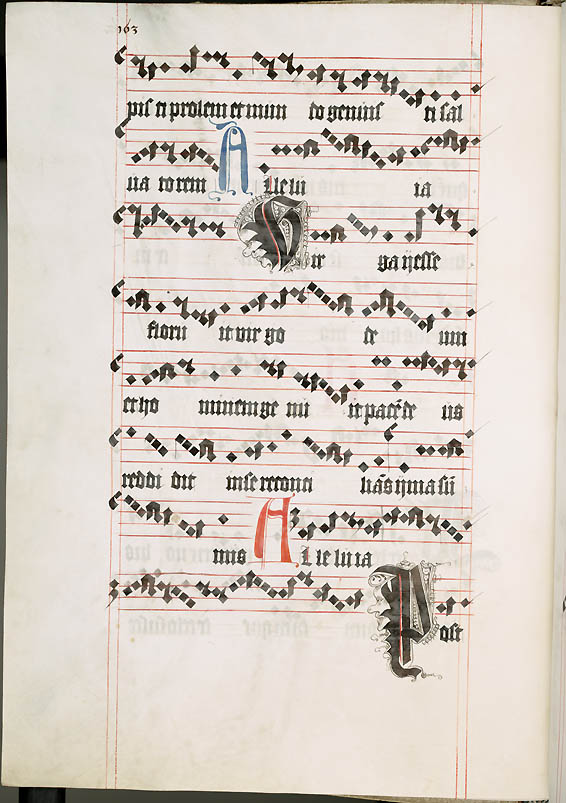 163
pis ti prolem et mun do genuis ti sal
ua to rem A lle lu ia
Vir ga yesse
floru it vir go de um
et ho minem ge nu it pacē de us
reddi dit in se reconci liās yma sū
mis A lle lu ia
Post